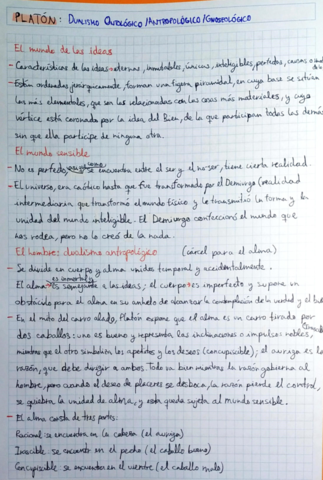 PLATÓN: DUALISMO ONTOLÓGICO/ANTROPOLÓGICO/GNOSEOLÓGICO
El mundo de las ideas
- Características de las ideas: eternas, inmutables, únicas, inteligibles, perfectas, causas
- Están ordenadas jerárquicamente, forman una figura piramidal, en cuya base se sitúan
las más elementales, que son las relacionadas con las cosas más materiales, y cuyo
vértice está coronada por la idea del Bien, de la que participan todas las demás
sin que ella participe de ninguna otra.
El mundo sensible
- No es perfecto, se encuentra entre el ser y el no-ser, tiene cierta realidad.
- El universo, era caótico hasta que fue transformado por el Demiurgo (realidad
intermediaria que transformó el mundo físico y le transmitió la forma y la
unidad del mundo inteligible. El Demiurgo confeccionó el mundo que
nos rodea, pero no lo creó de la nada.
El hombre: dualismo antropológico (cárcel para el alma)
- Se divide en cuerpo y alma unidos temporal y accidentalmente.
es inmortal y
El alma es semejante a las ideas; el cuerpo es imperfecto y supone un
obstáculo para el alma en su anhelo de alcanzar la contemplación de la verdad y el bien
- En el mito del carro alado, Platón expone que el alma es un carro tirado por
dos caballos: uno es bueno y representa, las inclinaciones o impulsos nobles,
mientras que el otro simboliza los apetitos y los deseos (concupiscible); el auriga es la
razón, que debe dirigir a ambos. Todo va bien mientras la razón gobierna al
hombre, pero cuando el deseo de placeres se desboca, la razón pierde el control,
se quiebra la unidad de alma, y esta queda sujeta al mundo sensible.
- El alma consta de tres partes:
Racional: se encuentra en la cabeza (el auriga)
Irascible: se encuentra en el pecho (el caballo bueno)
Concupiscible: se encuentra en el vientre (el caballo malo)